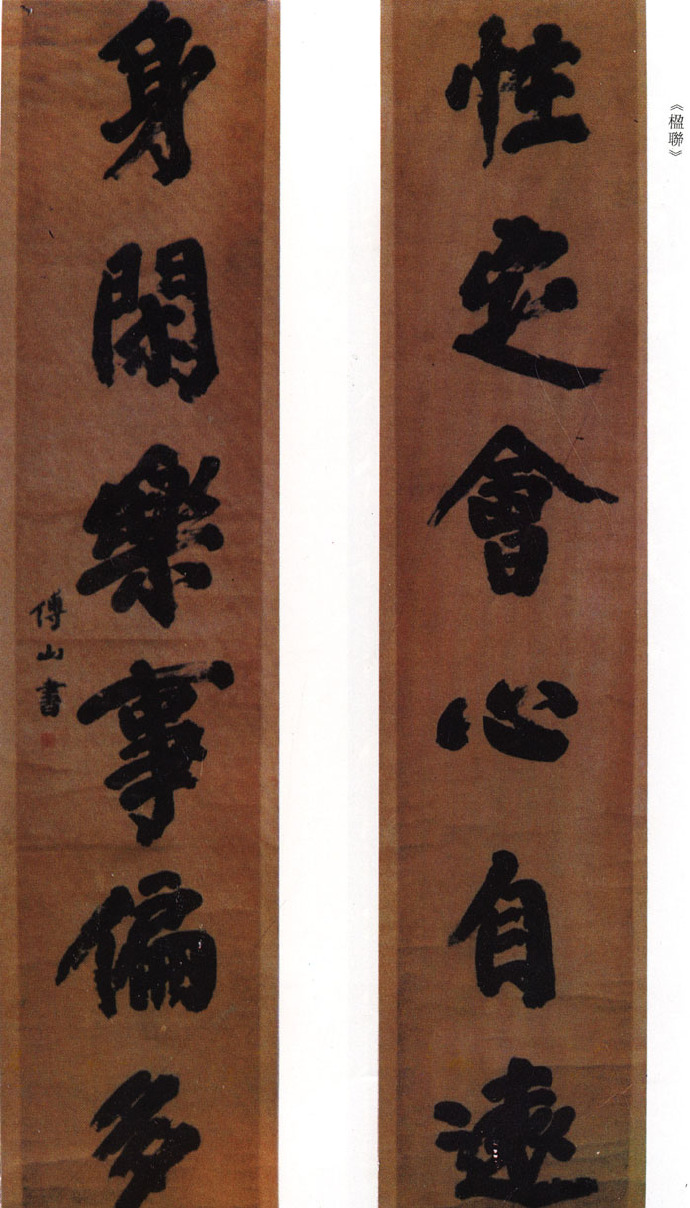 《楹聯》
性定會心自遠
身閑樂事偏多
傅山書